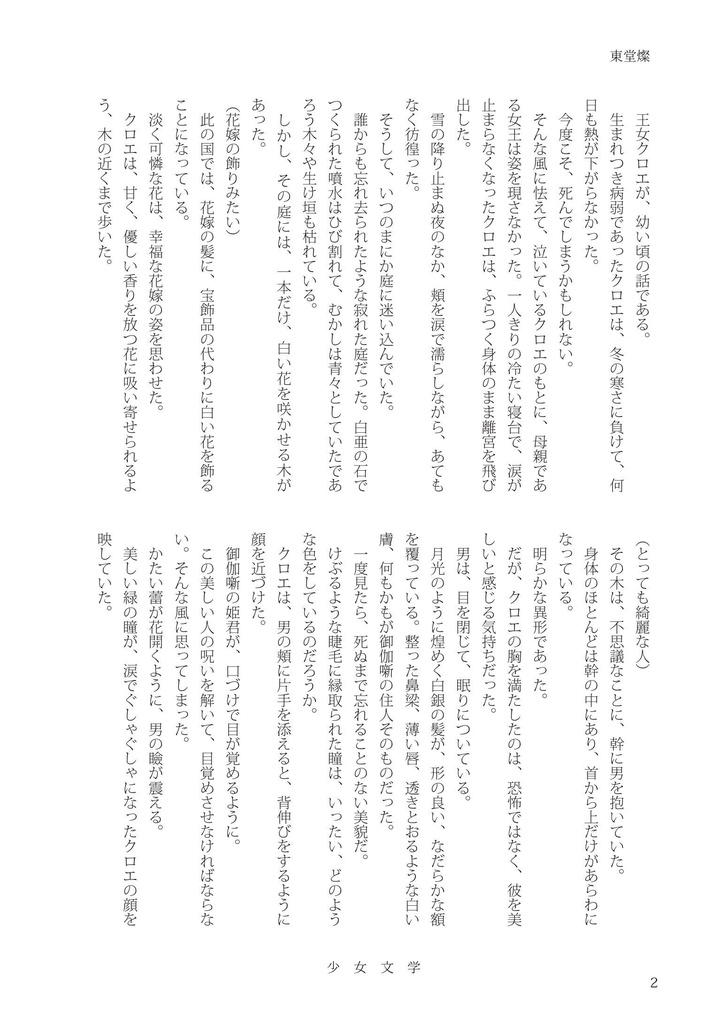 東堂燦
王女クロエが、幼い頃の話である。
生まれつき病弱であったクロエは、冬の寒さに負けて、何
日も熱が下がらなかった。
今度こそ、死んでしまうかもしれない。
そんな風に怯えて、泣いているクロエのもとに、母親であ
る女王は姿を現さなかった。一人きりの冷たい寝台で、涙が
止まらなくなったクロエは、ふらつく身体のまま離宮を飛び
出した。
雪の降り止まぬ夜のなか、頬を涙で濡らしながら、あても
なく彷徨った。
そうして、いつのまにか庭に迷い込んでいた。
誰からも忘れ去られたような寂れた庭だった。白亜の石で
つくられた噴水はひび割れて、むかしは青々としていたであ
ろう木々や生け垣も枯れている。
しかし、その庭には、一本だけ、白い花を咲かせる木が
あった。
(花嫁の飾りみたい)
此の国では、花嫁の髪に、宝飾品の代わりに白い花を飾る
ことになっている。
淡く可憐な花は、幸福な花嫁の姿を思わせた。
クロエは、甘く、優しい香りを放つ花に吸い寄せられるよ
う、木の近くまで歩いた。
(とっても綺麗な人)
その木は、不思議なことに、幹に男を抱いていた。
身体のほとんどは幹の中にあり、首から上だけがあらわに
なっている。
明らかな異形であった。
だが、クロエの胸を満たしたのは、恐怖ではなく、彼を美
しいと感じる気持ちだった。
男は、目を閉じて、眠りについている。
月光のように煌めく白銀の髪が、形の良い、なだらかな額
を覆っている。整った鼻梁、薄い唇、透きとおるような白い
膚、何もかもが御伽噺の住人そのものだった。
一度見たら、死ぬまで忘れることのない美貌だ。
けぶるような睫毛に縁取られた瞳は、いったい、どのよう
な色をしているのだろうか。
クロエは、男の頬に片手を添えると、背伸びをするように
顔を近づけた。
御伽噺の姫君が、口づけで目が覚めるように。
この美しい人の呪いを解いて、目覚めさせなければならな
い。そんな風に思ってしまった。
かたい蕾が花開くように、男の瞼が震える。
美しい緑の瞳が、涙でぐしゃぐしゃになったクロエの顔を
映していた。
少女文学
2